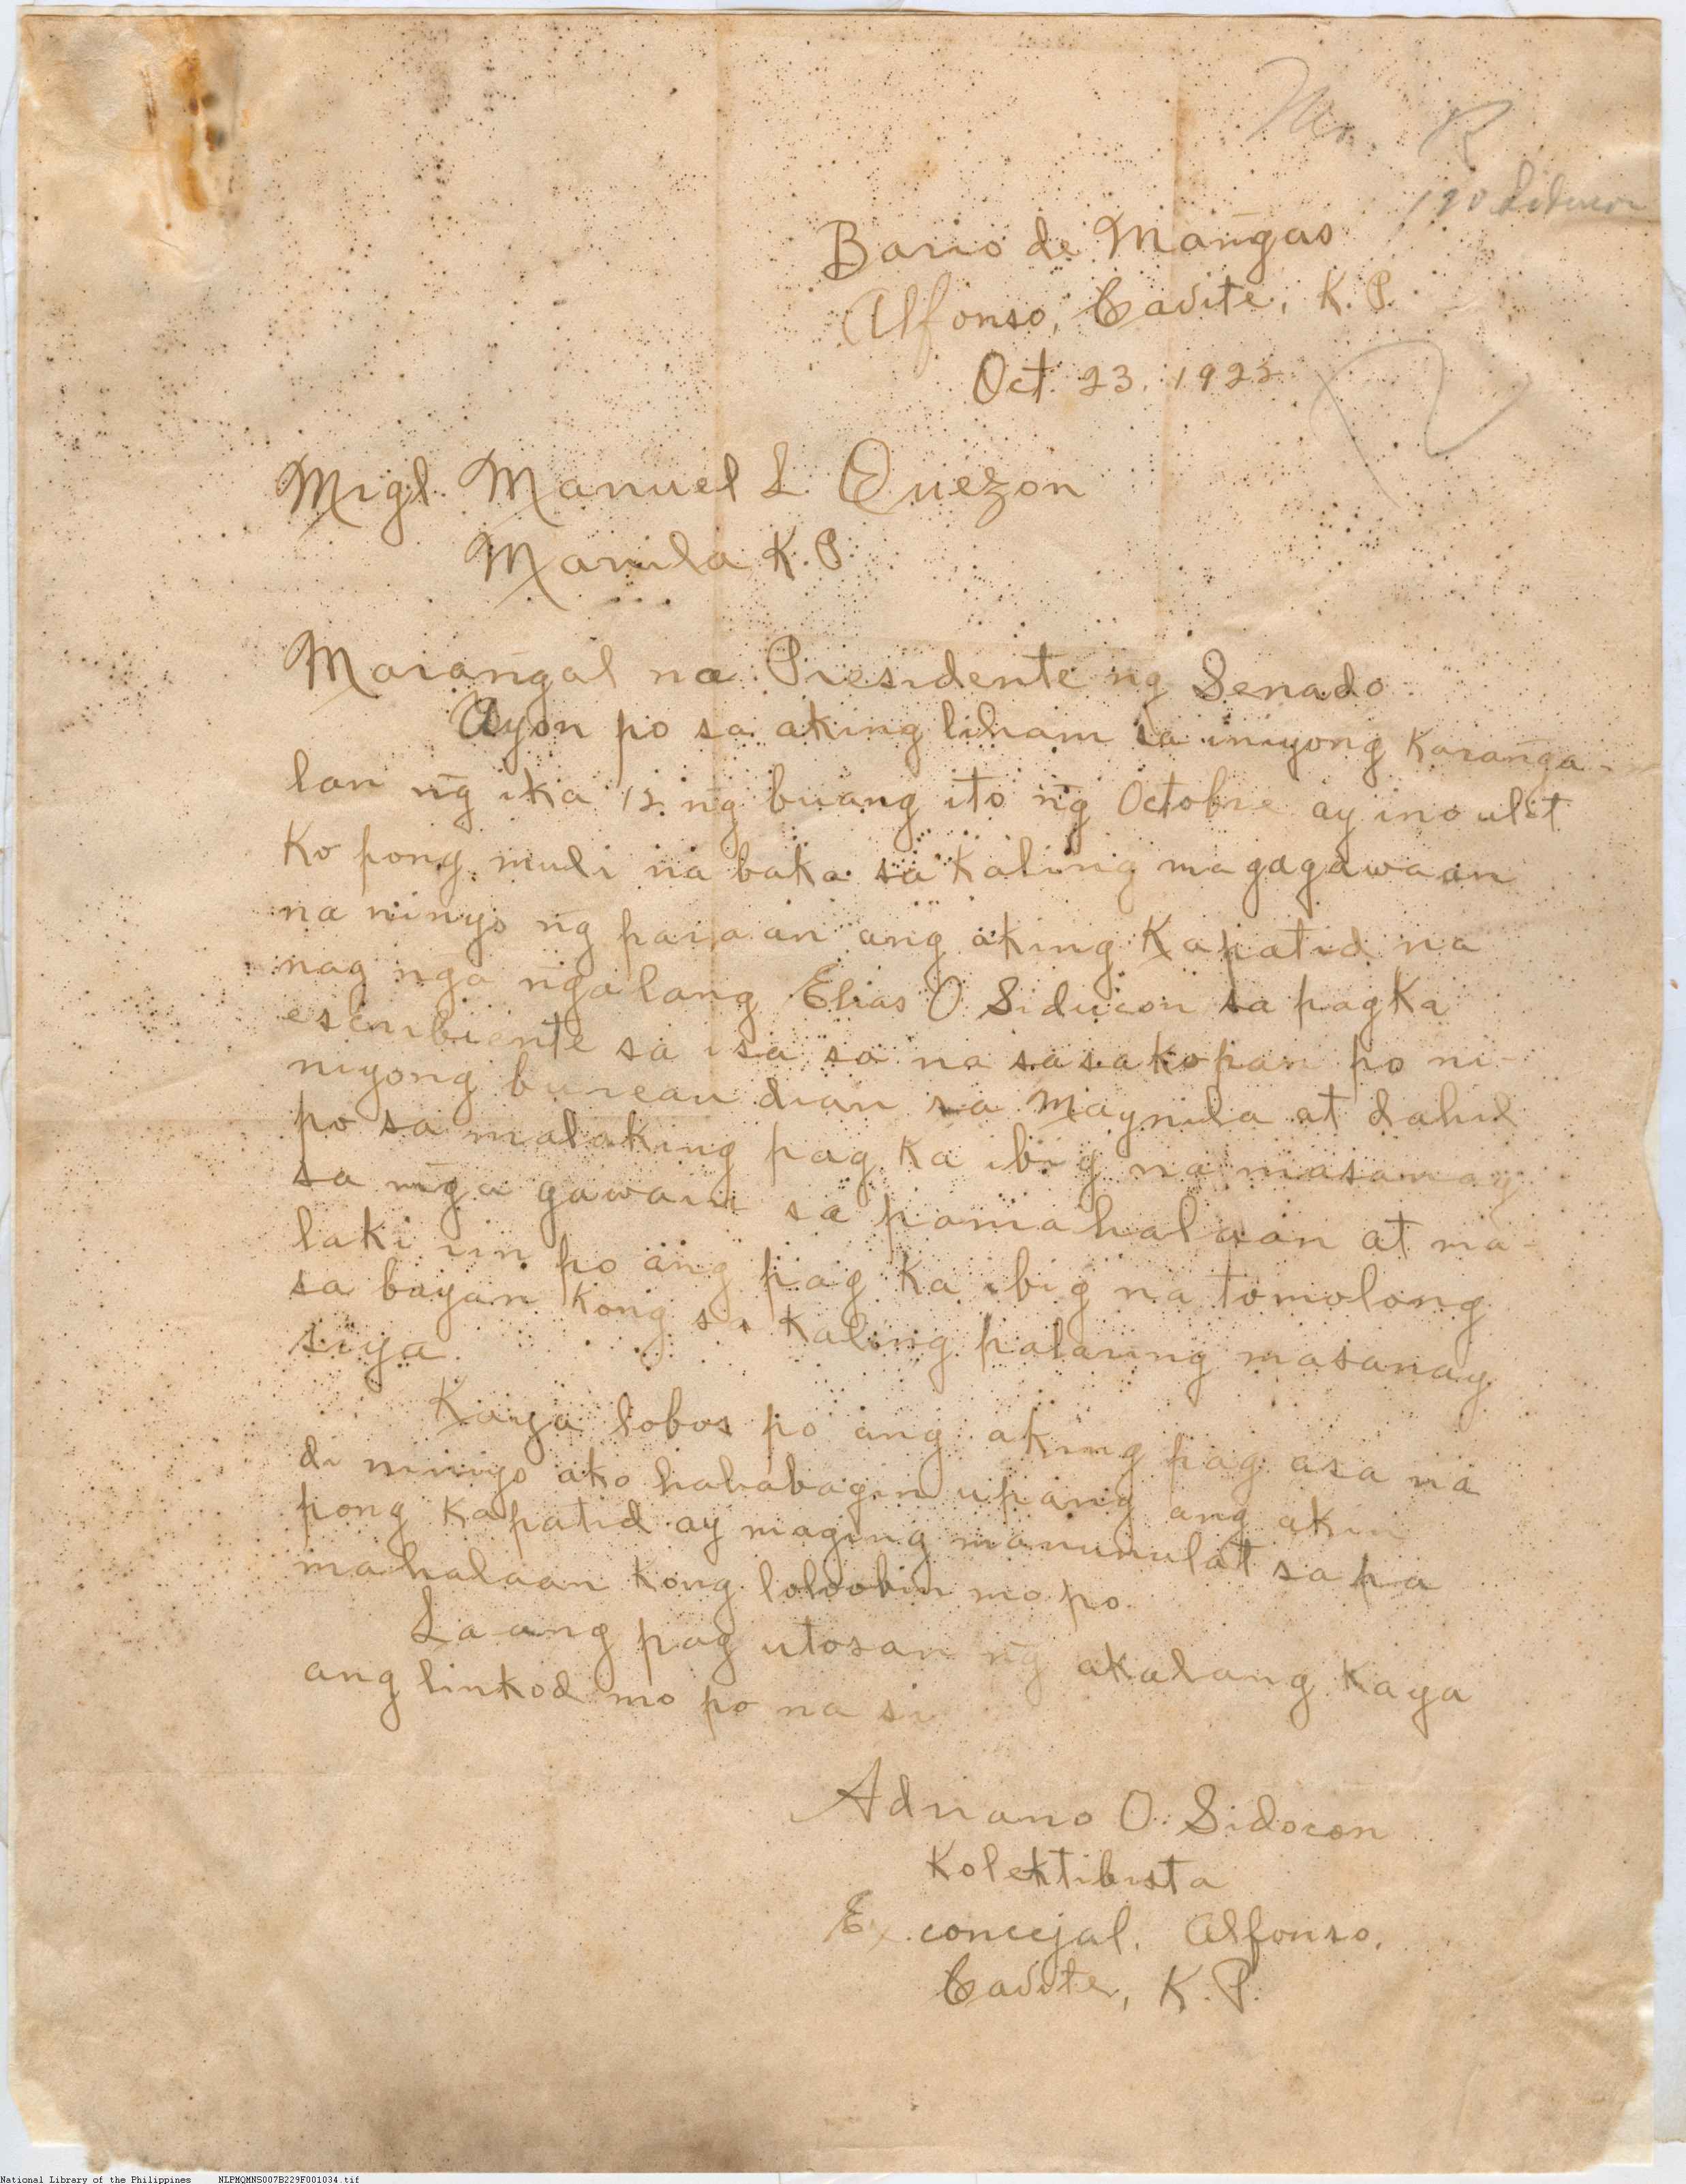 Mr. R
Bario de Mangas
Alfonso, Cavite, K. P.
Oct. 23, 1922
Migl. Manuel L. Quezon
Manila K. P.
Marangal na Presidente ng Senado
Ayon po sa aking liham sa iniyong Karanga-
lan ng̃ ika 12 ng̃ buang ito ng̃ Octobre ay ino ulit
Ko pong muli na baka sa kaling magagawaan
na ninyo ng̃ paraan ang aking Kapatid na
nag nga ngalang Elias O Siducon sa pagka
escribiente sa isa sa na sasakopan po ni-
niyong bureau dian sa Maynila at dahil
po sa malaking pag ka ibig na masanay
sa mg̃a gawain sa pamahalaan at ma-
laki rin po ang pag ka ibig na tomolong
sa bayan Kong sa kaling palaring masanay
siya.
Kaya lobos po ang aking pag asa na
di niniyo ako hahabagin upang ang akin
pong Kapatid ay maging manunulat sa pa
mahalaan kong loloobin mo po.
La ang pag utosan ng̃ akalang kaya
ang linkod mo po na si
Adriano O. Sidocon
Kolektibista
Ex concejal, Alfonso,
Cavite, K. P.
National Library of the Philippines NLPMQMNS007B229F001034.tif